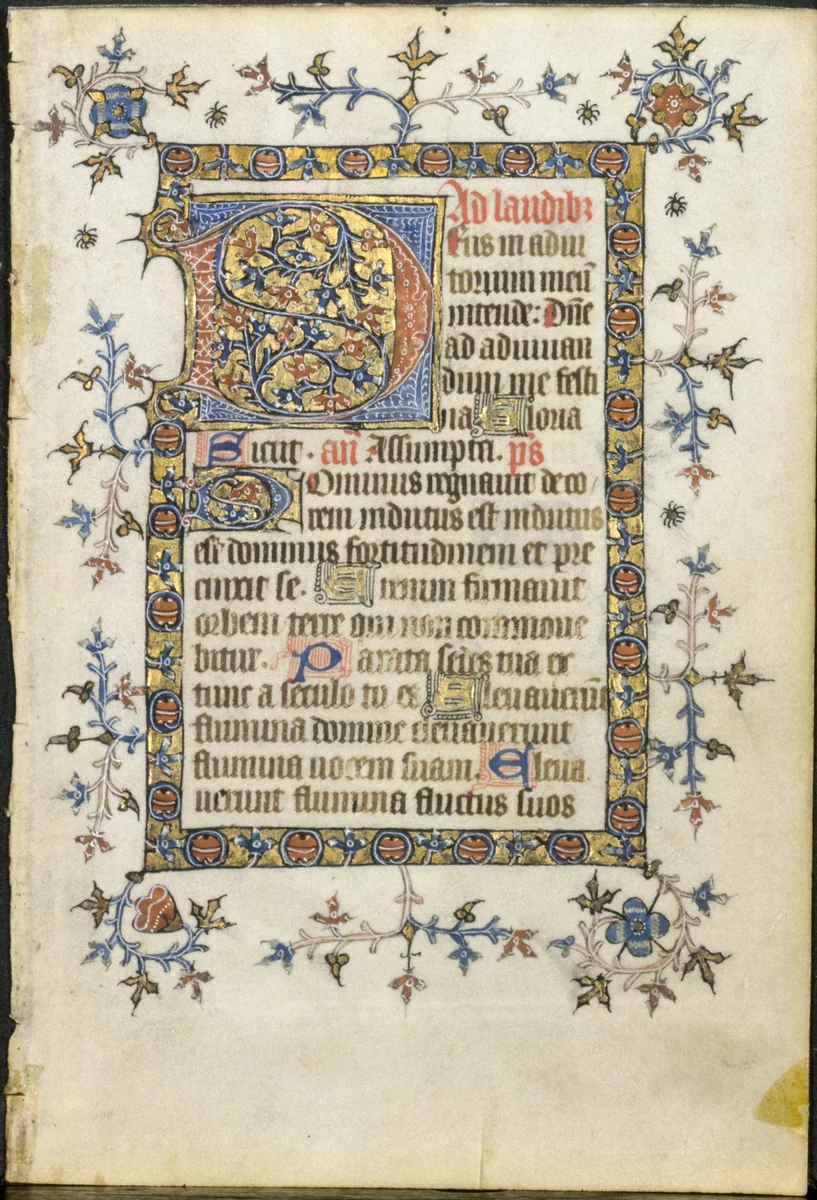 Ad laudibꝫ
Deus in adiu
torium meū
intende: Dn̄e
ad adiuuan
dum me festi
na Gloria
Sicut. an̄ Assumpta. p̄s
Dominus regnauit deco/
rem indutus est indutus
est dominus fortitudinem et pre
cinxit se. Etenim firmauit
orbem terre qui non commoue
bitur. Parata sedes tua ex
tunc a seculo tu es Eleuauerūt
flumina domine eleuauerunt
flumina uocem suam. Eleua
uerunt flumina fluctus suos